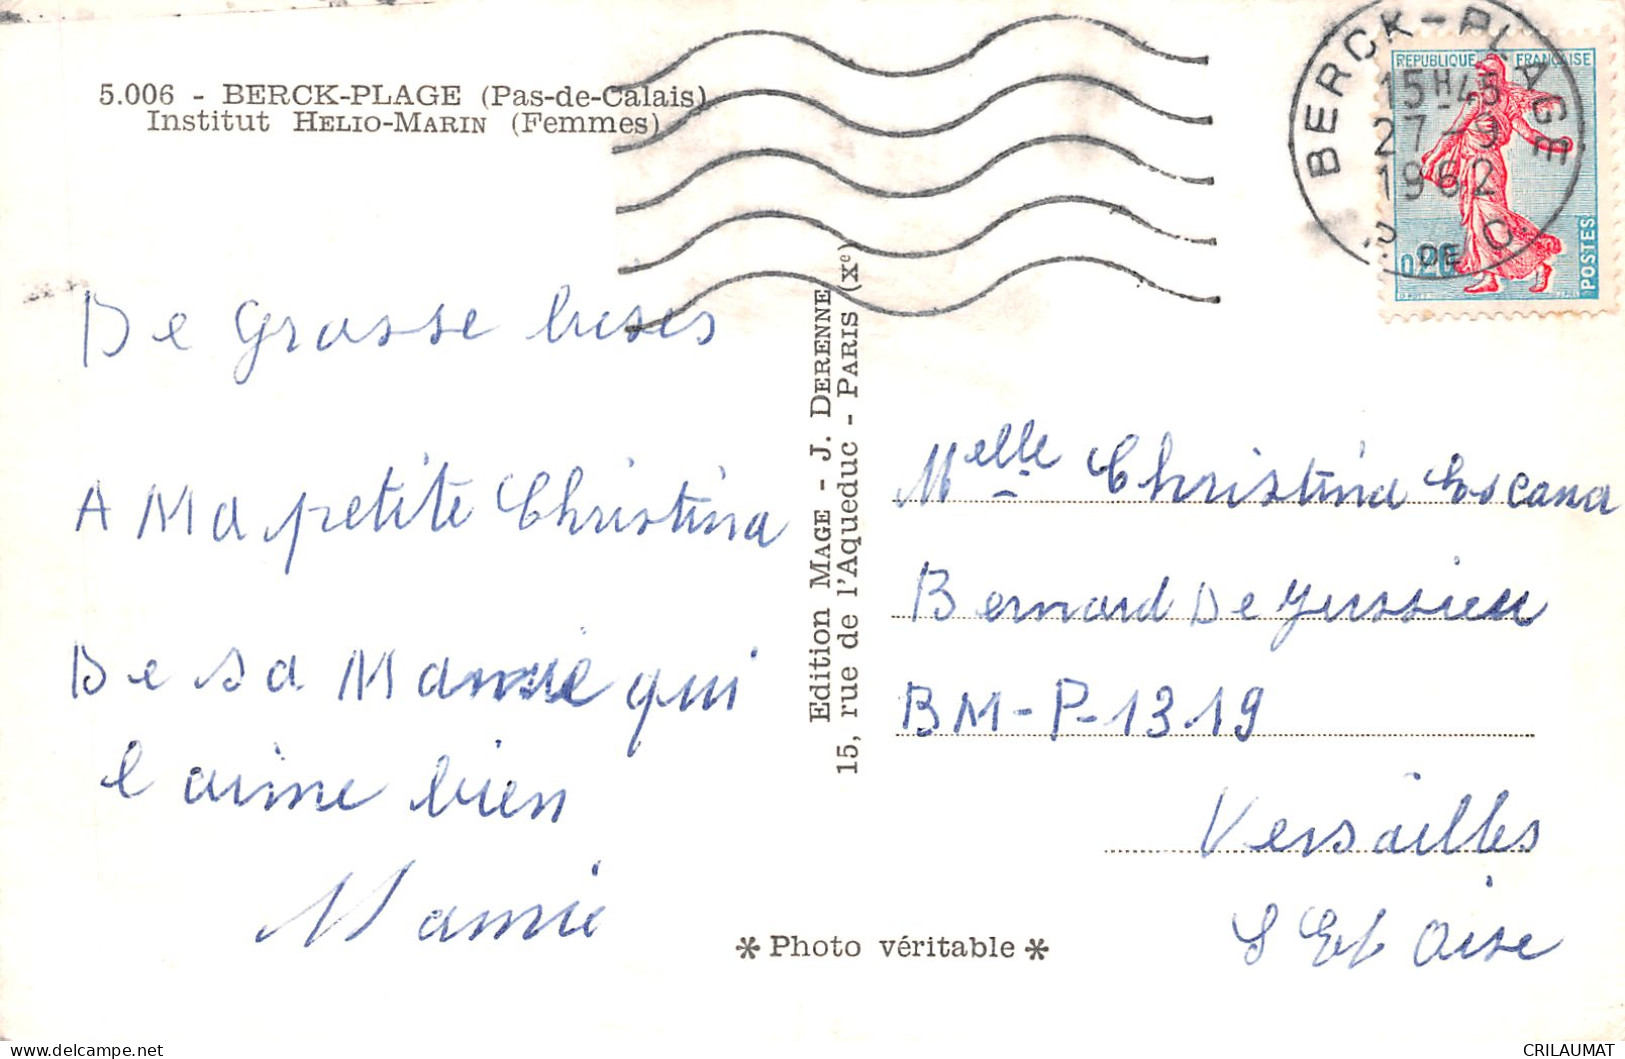 5.006 - BERCK-PLAGE (Pas-de-Calais)
Institut HELIO-MARIN (Femmes)
BERCK-PLAGE
15H45
27-9
1962
P DE C
REPUBLIQUE FRANÇAISE
0,20
POSTES
De Grosse bises
A Ma petite Christina
De sa Mamie qui
l aime bien
Mamie
Edition MAGE - J. DERENNE
15, rue de l'Aqueduc - PARIS (Xe)
Melle Christina Escana
Bernard De Jussieu
BM-P-1319
Versailles
S Et Oise
* Photo véritable *
delcampe.net
CRILAUMAT